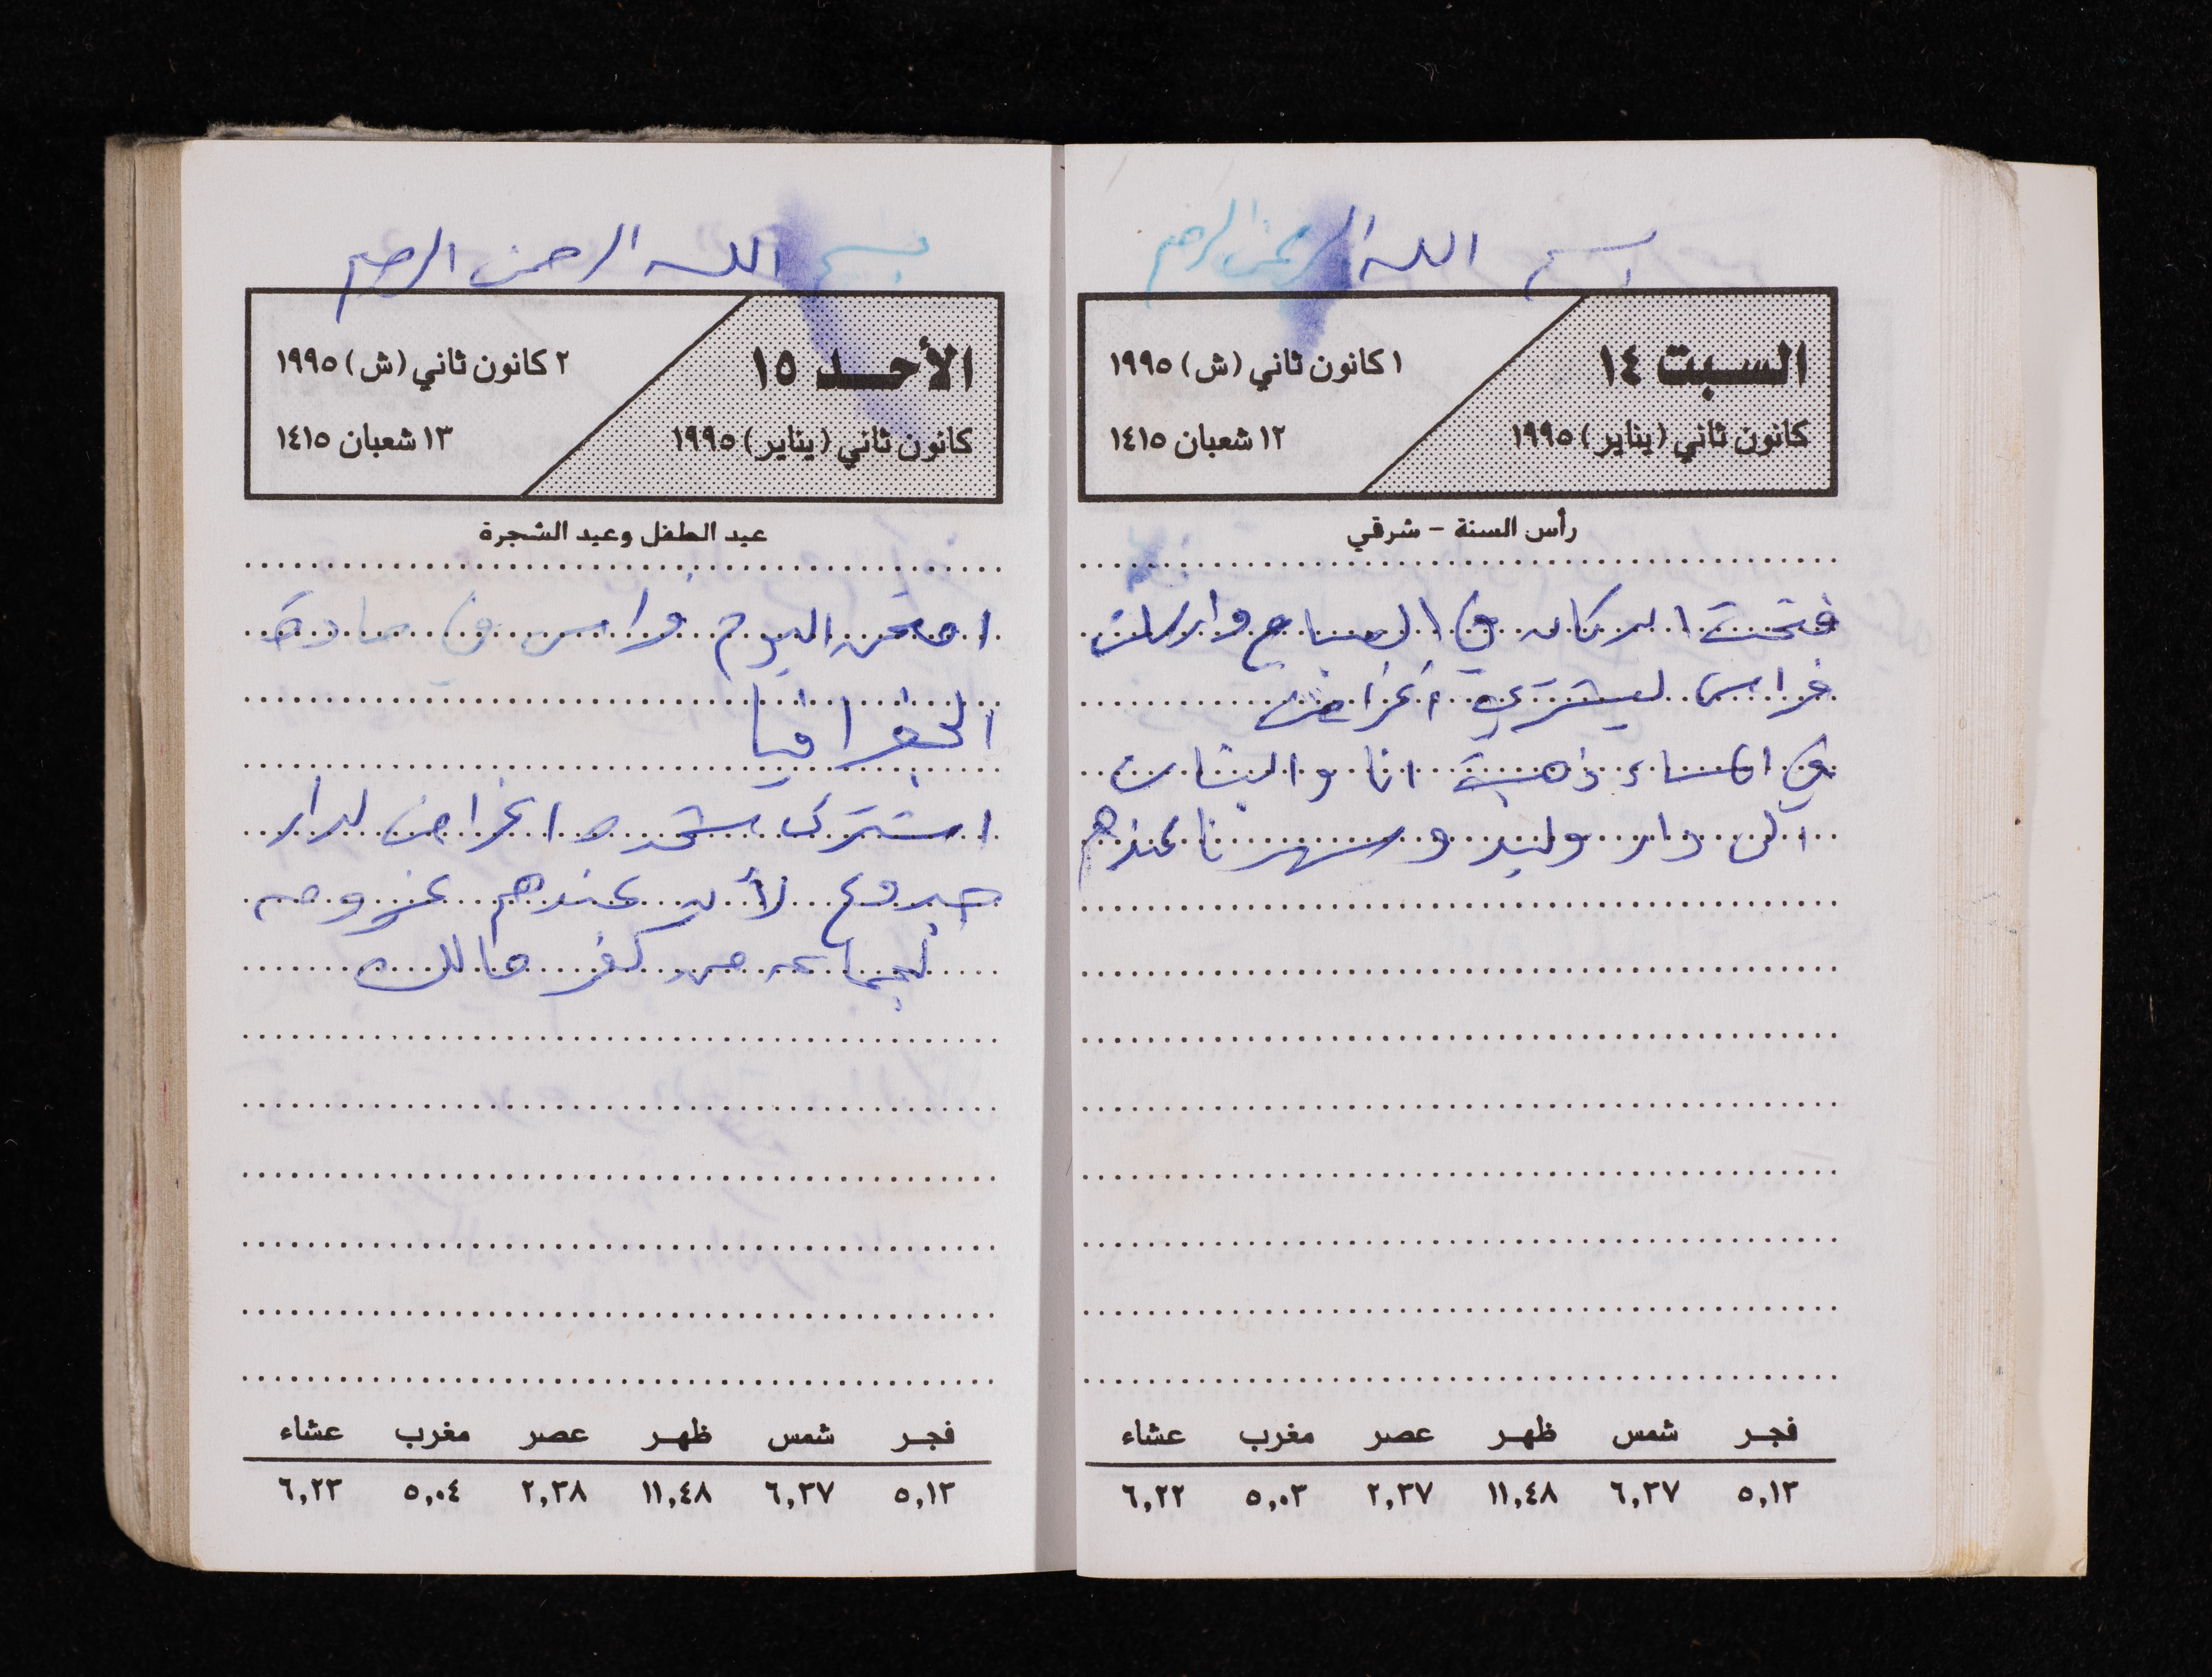 بسم الله الرحمن الرحيم
السبت ١٤
كانون ثاني (يناير) ١٩٩٥
١ كانون ثاني (ش) ١٩٩٥
١٢ شعبان ١٤١٥
رأس السنة - شرقي
فتحت الدكان في الصباح وارسلت
فراس ليشتري أغراض
في المساء ذهبت انا والبنات
الى دار وليد وسهرنا عندهم
فجر شمس ظهر عصر مغرب عشاء
٥,١٣ ٦,٣٧ ١١,٤٨ ٢,٣٧ ٥,٠٣ ٦,٢٢
بسم الله الرحمن الرحيم
الأحد ١٥
كانون ثاني (يناير) ١٩٩٥
٢ كانون ثاني (ش) ١٩٩٥
١٣ شعبان ١٤١٥
عيد الطفل وعيد الشجرة
امتحن اليوم فراس في مادة
الجغرافيا
اشترى شحده اغراض لدار
جدوع لأن عندهم عزومه
لجماعه من كفر مالك
فجر شمس ظهر عصر مغرب عشاء
٥,١٣ ٦,٣٧ ١١,٤٨ ٢,٣٨ ٥,٠٤ ٦,٢٣